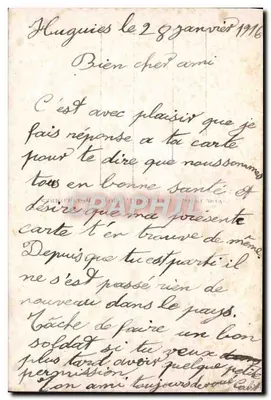 Huguies le 28 janvier 1916
Bien cher ami
C'est avec plaisir que je
fais réponse a ta carte
pour te dire que nous sommes
tous en bonne santé et
désire que ma présente
carte t'en trouve de même.
Depuis que tu est parti il
ne s'est passé rien de
nouveau dans le pays.
Tâche de faire un bon
soldat si tu veux
plus tard avoir quelque petite
permission.
Ton ami toujours